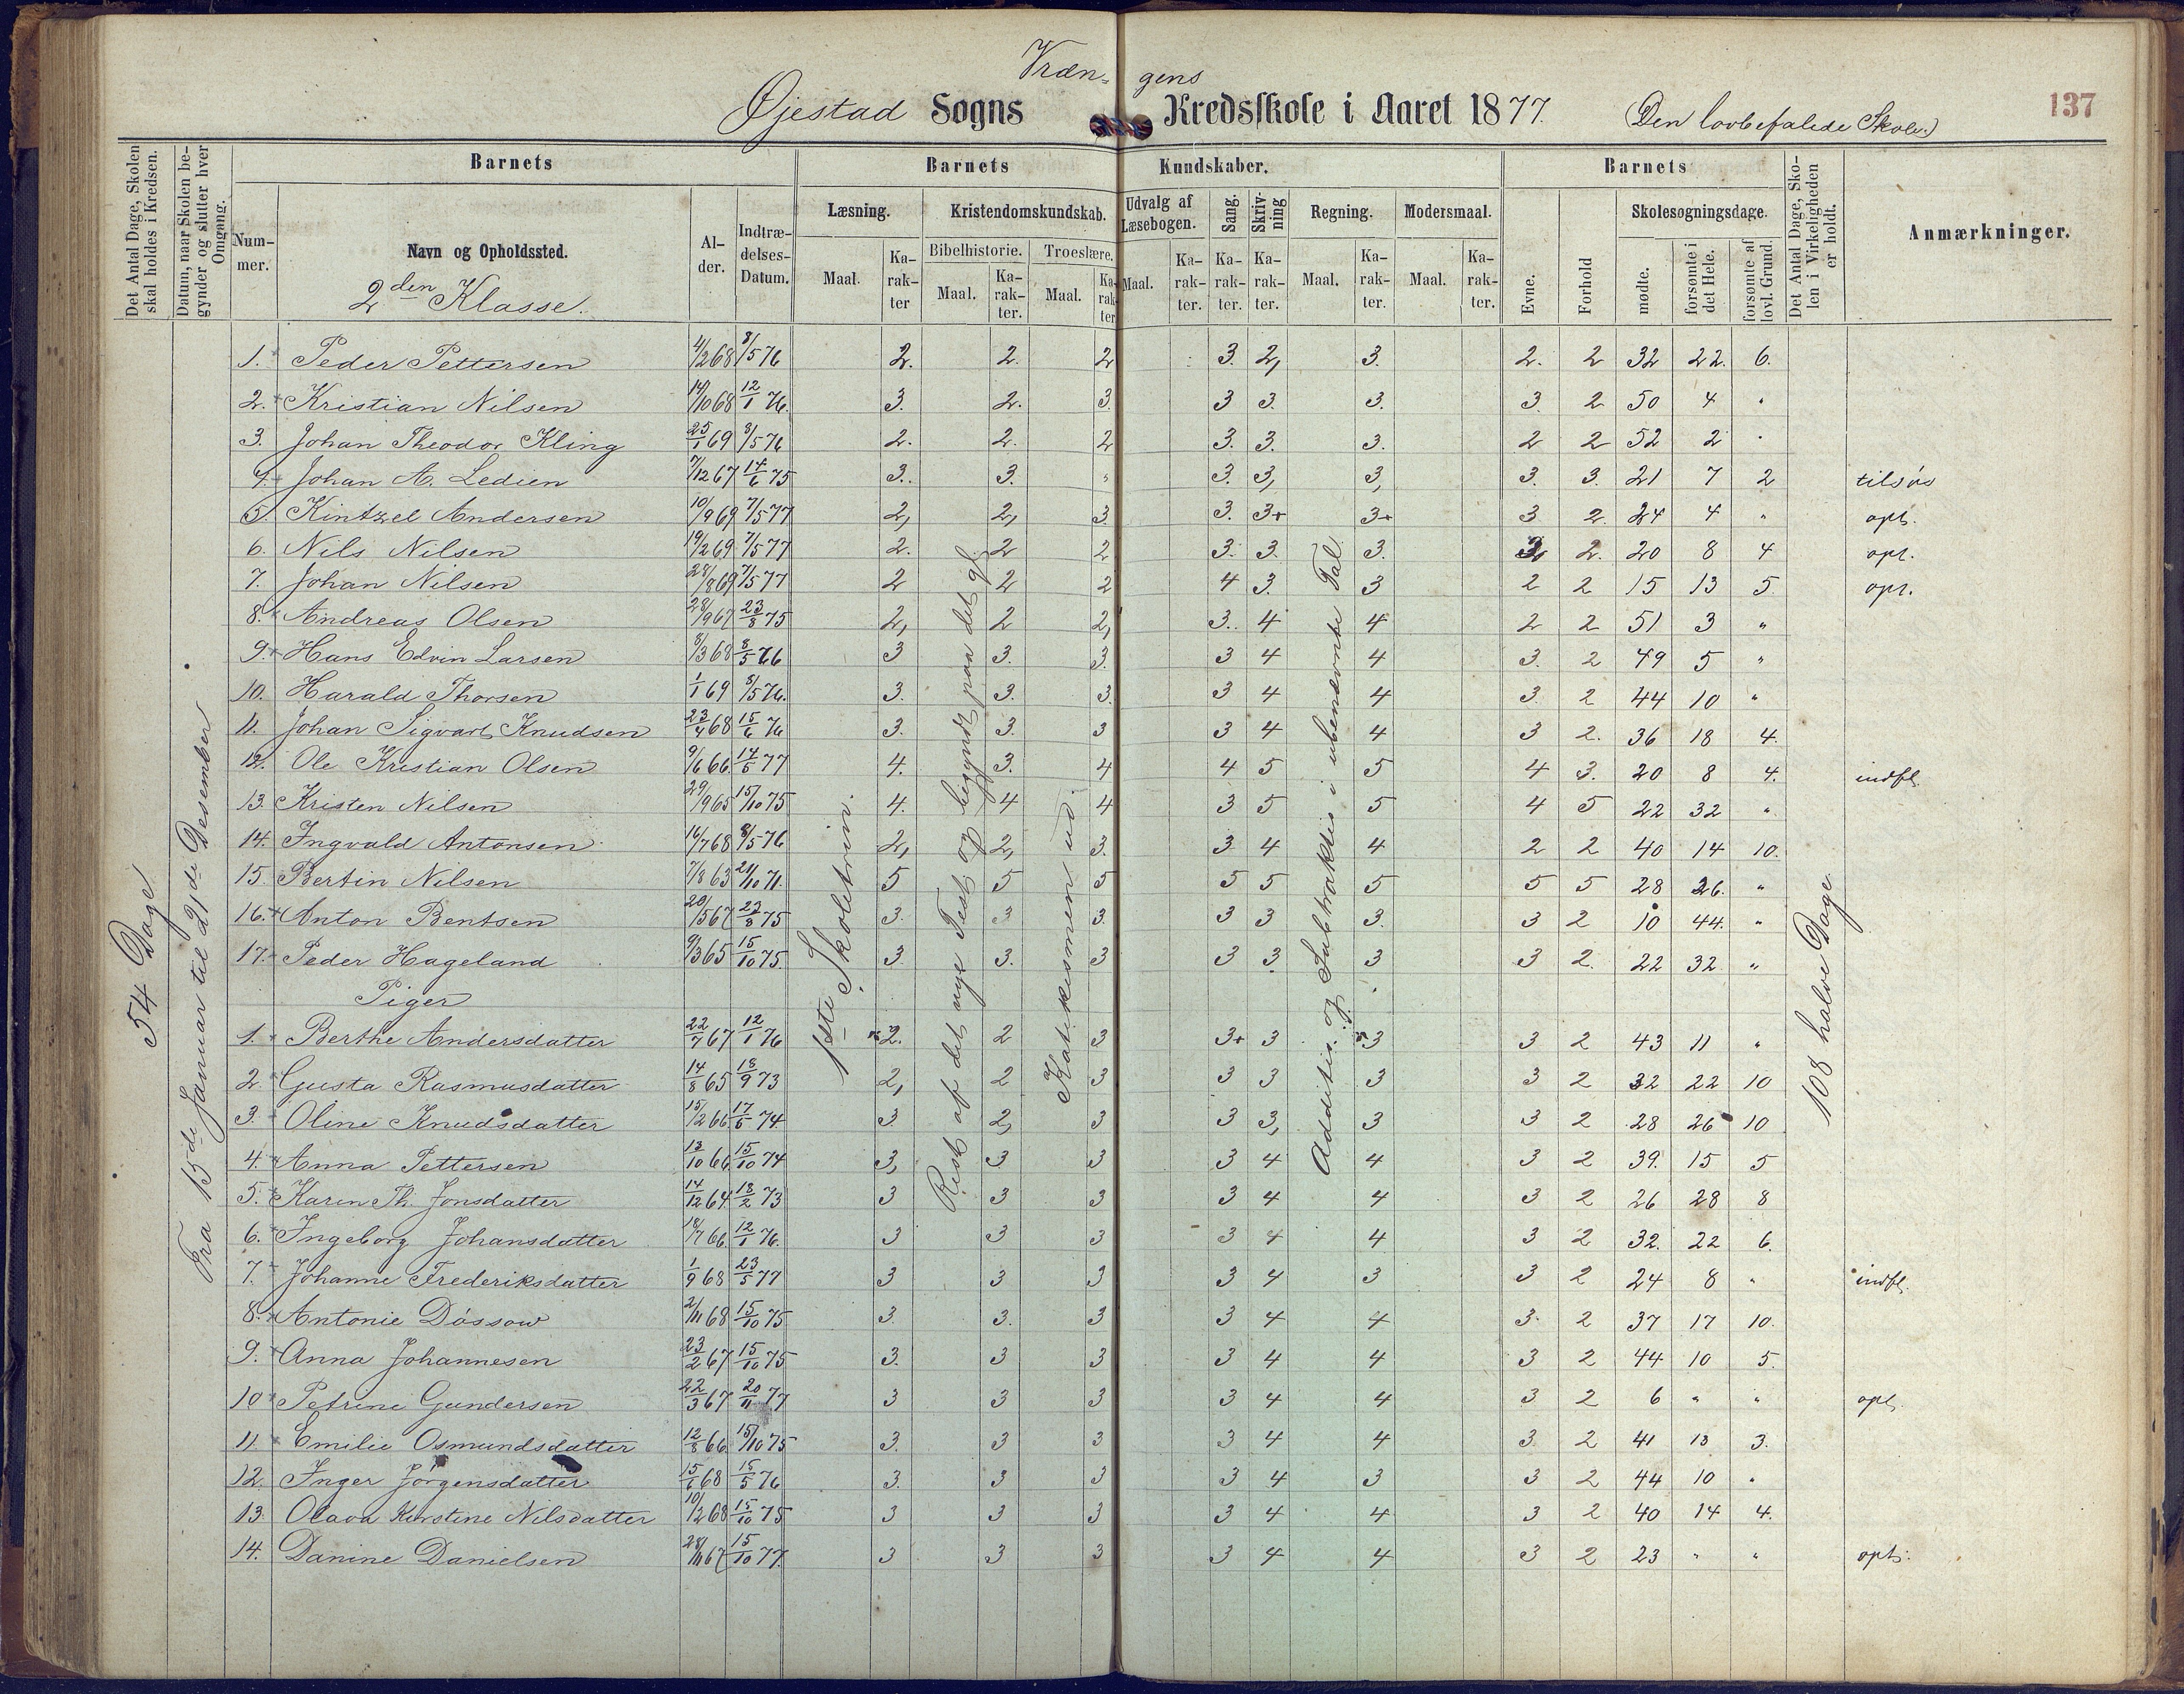 Vræn= gens
Øjestad Sogns Kredsskole i Aaret 1877. (Den lovbefalede Skole.) 137
Det Antal Dage, Skolen skal holdes i Kredsen.
Datum, naar Skolen begynder og slutter hver Omgang.
Barnets
Nummer.
Navn og Opholdssted.
2den Klasse.
Alder.
Indtrædelses-Datum.
Barnets Kundskaber.
Læsning. Maal. Karakter
Kristendomskundskab.
Bibelhistorie. Maal. Karakter.
Troeslære. Maal. Karakter
Udvalg af Læsebogen. Maal. Karakter.
Sang. Karakter.
Skrivning Karakter.
Regning. Maal. Karakter.
Modersmaal. Maal. Karakter.
Barnets
Evne. Forhold
Skolesøgningsdage.
mødte. forsømte i det Hele. forsømte af lovl. Grund.
Det Antal Dage, Skolen i Virkeligheden er holdt.
Anmærkninger.
54 Dage
Fra 15de Januar til 21de Desember
1ste Skoletrin.
Rest af det nye Test og begyndt paa det gl.
Katekismen ud.
Addition og Subtraktion i ubenævnte Tal.
108 halve Dage.
1. Peder Pettersen 4/2 68 8/5 76 2. 2. 2 3. 2, 3. 2. 2 32 22. 6.
2. Kristian Nilsen 14/10 68 12/1 76. 3. 2. 3. 3 3. 3. 3. 2 50 4 "
3. Johan Theodor Kling 25/1 69 8/5 76 2. 2. 2 3. 3. 3. 2 2 52 2 "
4. Johan A. Ledien 7/12 67 14/6 75 3. 3. " 3. 3, 3, 3. 3. 21 7 2 tilsøs
5. Kintzel Andersen 10/9 69 7/5 77 2, 2, 3. 3. 3+ 3+ 3 2. 24 4 " opt.
6. Nils Nilsen 19/2 69 7/5 77 2. 2 2 3. 3. 3. 2. 20 8 4 opt.
7. Johan Nilsen 28/8 69 7/5 77 2 2 2 4 3. 3 2 2 15 13 5 opt.
8. Andreas Olsen 28/9 67 23/8 75 2, 2 2, 3. 4 4 2 2 51 3 "
9. Hans Edvin Larsen 8/3 68 8/5 76 3 3. 3. 3 4 4 3. 2 49 5 "
10. Harald Thorsen 1/1 69 8/5 76. 3. 3. 3. 3 4 4 3. 2 44 10 "
11. Johan Sigvart Knudsen 23/4 68 15/6 76 3. 3. 3 3 4 4 3 2. 36 18 4.
12. Ole Kristian Olsen 9/6 66. 14/5 77 4. 3. 4 4 5 5 4 3. 20 8 4. indfl.
13. Kristen Nilsen 29/9 65 15/10 75 4. 4 4 3 5 5 4 5 22 32 "
14. Ingvald Antonsen 16/7 68 8/5 76 2, 2, 3. 3 4 4 2 2 40 14 10.
15. Bertin Nilsen 7/8 63 21/10 71. 5 5 5 5 5 5 5 5 28 26. "
16. Anton Bentsen 20/5 67 23/8 75 3. 3 3. 3 3 3. 3 2 10 44. "
17. Peder Hageland 9/3 65 15/10 75. 3 3. 3 3 3. 3 3 2. 22 32. "
Piger
1. Berthe Andersdatter 22/7 67 12/1 76 2. 2 3 3+ 3 3 3 2 43 11 "
2. Gusta Rasmusdatter 14/8 65 18/9 73 2, 2 3 3 3 3 3 2 32 22 10
3. Oline Knudsdatter 15/2 66. 17/5 74 3. 2, 3 3 3, 3 3 2 28 26 10
4. Anna Pettersen 13/10 66. 15/10 74 3, 3 3 3 4 4 3 2 39. 15 5
5. Karen Th. Jonsdatter 14/12 64. 18/2 73 3 3 3 3 4 4 3 2 26 28 8
6. Ingeborg Johansdatter 18/7 66. 12/1 76. 3 3 3 3 4 4 3 2 32. 22 6.
7. Johanne Frederiksdatter 1/9 68 23/5 77 3 3 3 3 4 3 3 2 24 8 " indfl.
8. Antonie Døssow 2/11 68 15/10 75 3. 3. 3 3 4 4 3. 2 37 17 10.
9. Anna Johannesen 23/2 67 15/10 75 3. 3 3 3 4 4 3 2 44 10 5.
10 Petrine Gundersen 22/3 67 20/11 77 3 3 3 3 4 4 3 2 6 " " opt.
11. Emilie Osmundsdatter 12/8 66. 15/10 75 3. 3 3 3 4 4 3 2 41 13 3.
12. Inger Jørgensdatter 15/6 68 15/5 76 3. 3 3 3 4 3 3 2 44 10 "
13. Olava Kirstine Nilsdatter 10/12 68 15/10 75 3 3 3 3 4 4 3 2 40 14 4.
14. Danine Danielsen 28/11 67 15/10 77. 3 3 3 3 4 4 3 2 23 " " opt.